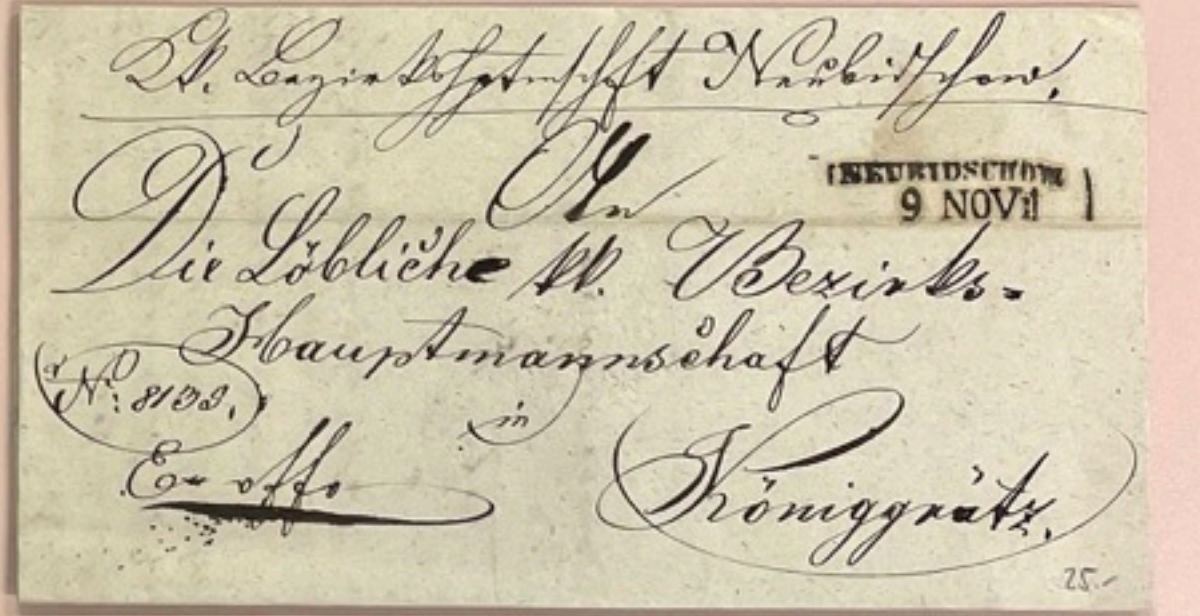 Kk. Bezirkshptmschaft Neubidschow.
An
NEUBIDSCHOW
9 NOV:
Die Löbliche kk. Bezirks-
Hauptmannschaft
No: 8139.
in
Ex offo
Königgrätz.
25.-